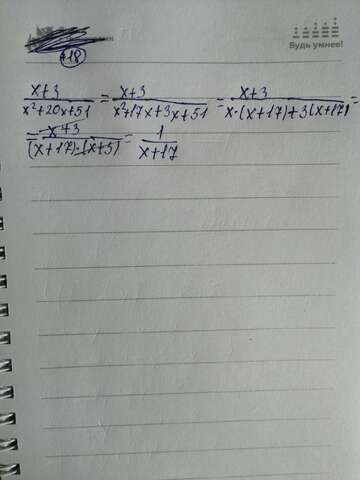 Будь умнее!
418
x+3/x²+20x+51 = x+3/x²+17x+3x+51 = x+3/x·(x+17)+3(x+17) =
= x+3/(x+17)·(x+3) = 1/x+17